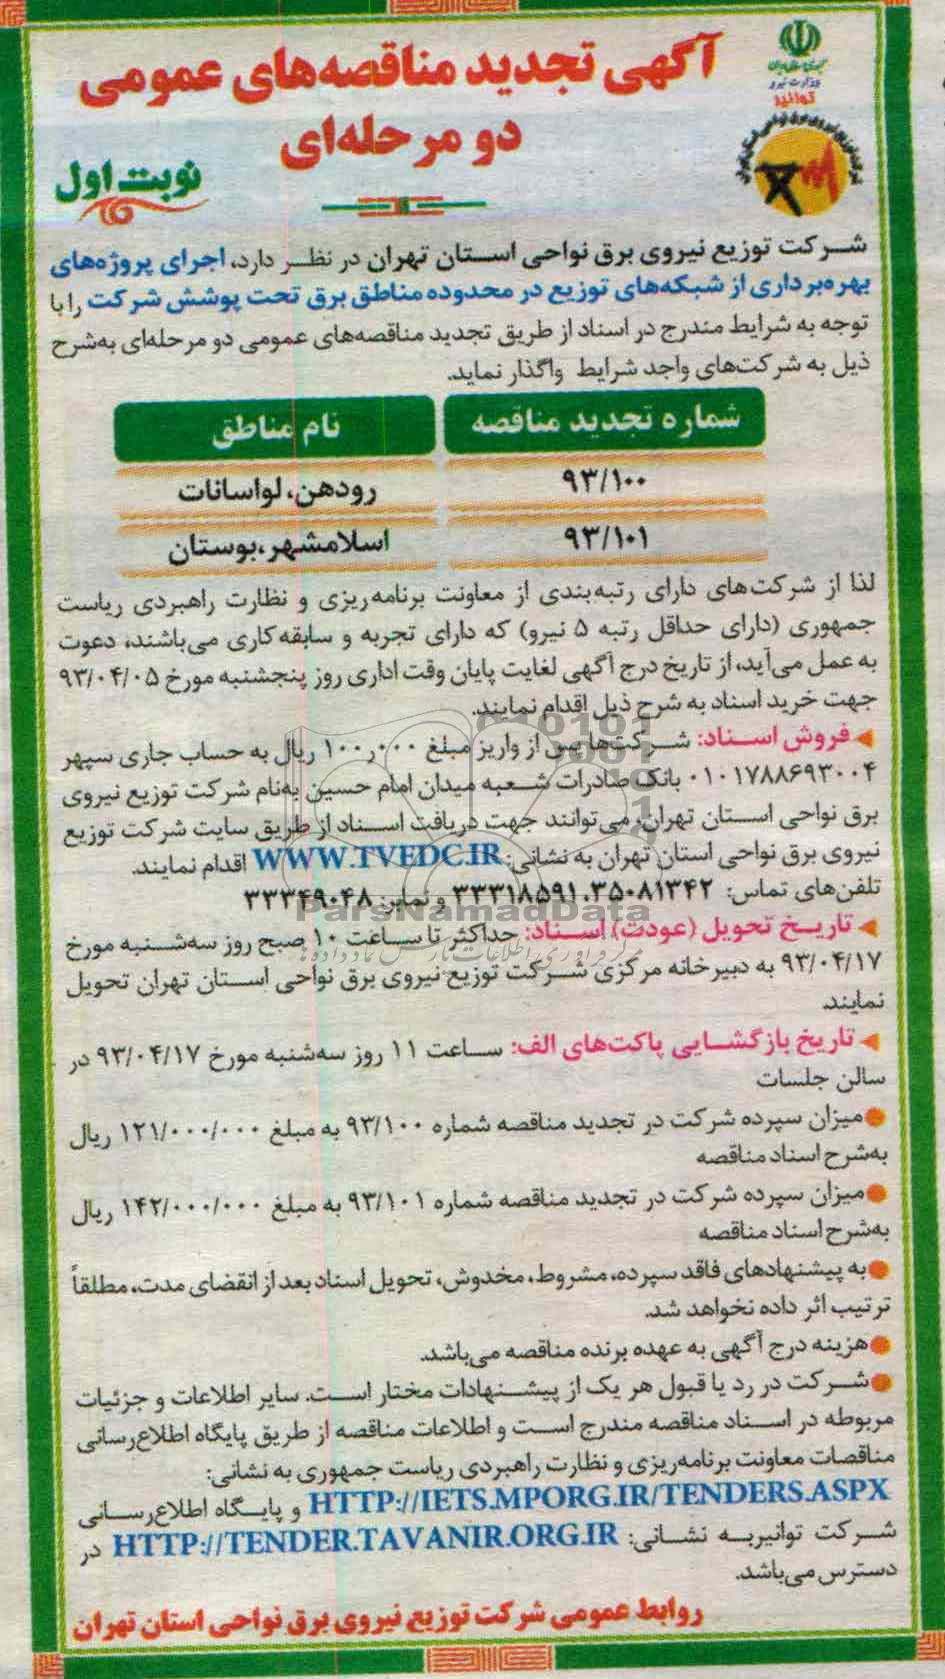 جمهوری اسلامی ایران
وزارت نیرو
توانیر
آگهی تجدید مناقصه‌های عمومی
دو مرحله‌ای
نوبت اول
شرکت توزیع نیروی برق نواحی استان تهران در نظر دارد، اجرای پروژه‌های
بهره‌برداری از شبکه‌های توزیع در محدوده مناطق برق تحت پوشش شرکت را با
توجه به شرایط مندرج در اسناد از طریق تجدید مناقصه‌های عمومی دو مرحله‌ای به‌شرح
ذیل به شرکت‌های واجد شرایط واگذار نماید.
شماره تجدید مناقصه نام مناطق
۹۳/۱۰۰ رودهن، لواسانات
۹۳/۱۰۱ اسلامشهر،بوستان
لذا از شرکت‌های دارای رتبه‌بندی از معاونت برنامه‌ریزی و نظارت راهبردی ریاست
جمهوری (دارای حداقل رتبه ۵ نیرو) که دارای تجربه و سابقه کاری می‌باشند، دعوت
به عمل می‌آید، از تاریخ درج آگهی لغایت پایان وقت اداری روز پنجشنبه مورخ ۹۳/۰۴/۰۵
جهت خرید اسناد به شرح ذیل اقدام نمایند.
فروش اسناد: شرکت‌ها پس از واریز مبلغ ۱۰۰٫۰۰۰ ریال به حساب جاری سپهر
۰۱۰۱۷۸۸۶۹۳۰۰۴ بانک صادرات شعبه میدان امام حسین به‌نام شرکت توزیع نیروی
برق نواحی استان تهران، می‌توانند جهت دریافت اسناد از طریق سایت شرکت توزیع
نیروی برق نواحی استان تهران به نشانی: WWW.TVEDC.IR اقدام نمایند.
تلفن‌های تماس: ۳۵۰۸۱۳۴۲، ۳۳۳۱۸۵۹۱ و نمابر: ۳۳۳۴۹۰۴۸
ParsNamadData
تاریخ تحویل (عودت) اسناد: حداکثر تا ساعت ۱۰ صبح روز سه‌شنبه مورخ
۹۳/۰۴/۱۷ به دبیرخانه مرکزی شرکت توزیع نیروی برق نواحی استان تهران تحویل
نمایند.
تاریخ بازگشایی پاکت‌های الف: ساعت ۱۱ روز سه‌شنبه مورخ ۹۳/۰۴/۱۷ در
سالن جلسات
میزان سپرده شرکت در تجدید مناقصه شماره ۹۳/۱۰۰ به مبلغ ۱۲۱/۰۰۰/۰۰۰ ریال
به‌شرح اسناد مناقصه
میزان سپرده شرکت در تجدید مناقصه شماره ۹۳/۱۰۱ به مبلغ ۱۴۲/۰۰۰/۰۰۰ ریال
به‌شرح اسناد مناقصه
به پیشنهادهای فاقد سپرده، مشروط، مخدوش، تحویل اسناد بعد از انقضای مدت، مطلقاً
ترتیب اثر داده نخواهد شد.
هزینه درج آگهی به عهده برنده مناقصه می‌باشد.
شرکت در رد یا قبول هر یک از پیشنهادات مختار است. سایر اطلاعات و جزئیات
مربوطه در اسناد مناقصه مندرج است و اطلاعات مناقصه از طریق پایگاه اطلاع‌رسانی
مناقصات معاونت برنامه‌ریزی و نظارت راهبردی ریاست جمهوری به نشانی:
HTTP://IETS.MPORG.IR/TENDERS.ASPX و پایگاه اطلاع‌رسانی
شرکت توانیربه نشانی: HTTP://TENDER.TAVANIR.ORG.IR در
دسترس می‌باشد.
روابط عمومی شرکت توزیع نیروی برق نواحی استان تهران